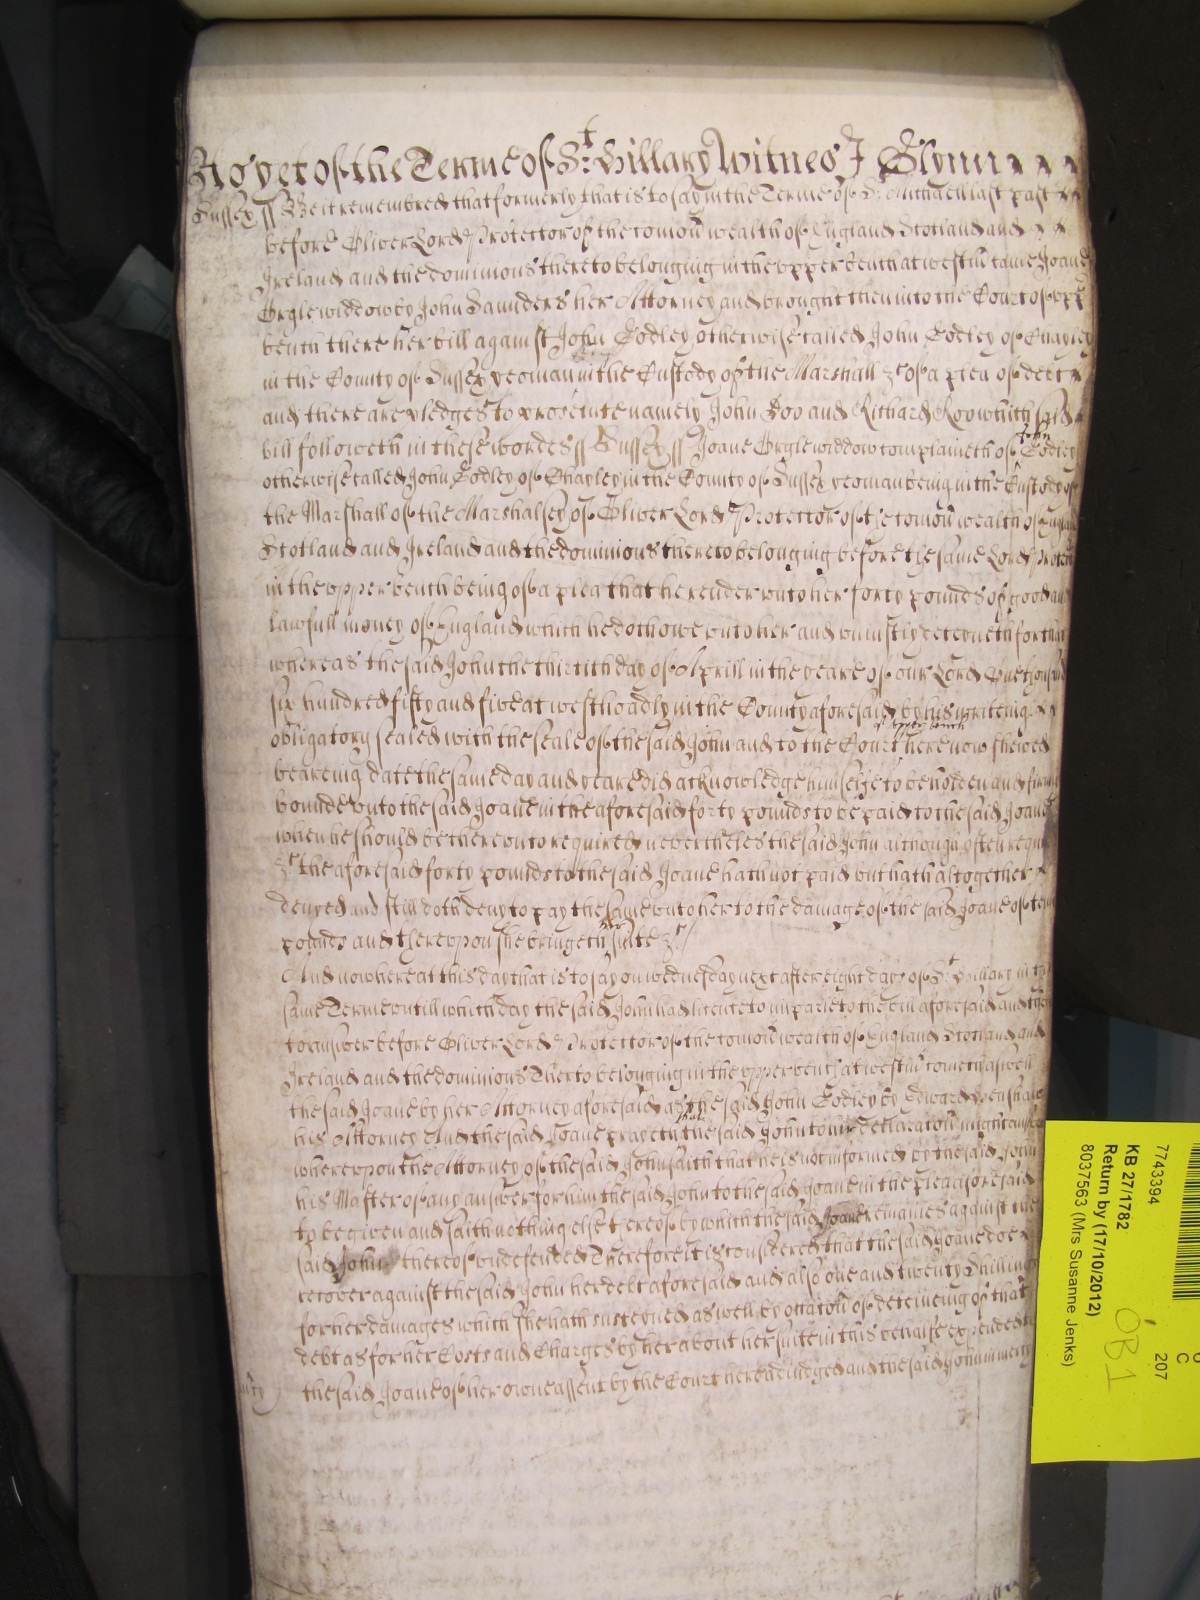 As yet of the Terme of St Hillary Witnes J Glynn
Sussex ss Be it remembred that formerly that is to say in the Terme of St Michaell last past
before Oliver Lord Protector of the comon wealth of England Scotland and
Ireland and the dominions thereto belonging in the upper bench at westm came Joane
widdow by John Saunders her Attorney and brought then into the Court of upp
bench there her bill against John Godley otherwise called John Godley of Chayley
in the County of Sussex yeoman in the Custody of the Marshall &c of a plea of debt
and there are pledges to prosecute namely John Doo and Richard Roo which said
bill followeth in these wordes ss Sussex ss Joane widdow complaineth of John Godley
otherwise called John Godley of Chayley in the County of Sussex yeoman being in the Custody of
the Marshall of the Marshalsey of Oliver Lord Protector of the comon wealth of England
Scotland and Ireland and the dominions thereto belonging before the same Lord Protect
in the upper bench being of a plea that he render unto her forty pounds of good and
lawfull money of England which he doth owe unto her and uniustly deteyneth for that
whereas the said John the thirtith day of Aprill in the yeare of our Lord One thousand
six hundred fifty and five at westhoadly in the County aforesaid by his writeing
obligatory sealed with the seale of the said John and to the Court of upper bench here now shewed
beareing date the same day and yeare did acknowledge himselfe to be holden and firmly
bound unto the said Joane in the aforesaid forty pounds to be paid to the said Joane
when he should be thereunto required nevertheles the said John although often requir
&c the aforesaid forty pounds to the said Joane hath not paid but hath altogether
denyed and still doth deny to pay the same unto her to the damage of the said Joane of ten
pounds and thereupon she bringeth her suite &c
And now here at this day that is to say on wednesday next after eight dayes of St Hillary in this
same Terme untill which day the said John had licence to imparle to the bill aforesaid and then
to answer before Oliver Lord Protector of the comon wealth of England Scotland and
Ireland and the dominions Therto belonging in the upper bench at westm cometh aswell
the said Joane by her Attorney aforesaid as the said John Godley by Edward
his Attorney And the said Joane prayeth that the said John to her declaracon might answer
whereupon the Attorney of the said John saith that he is not informed by the said John
his Master of any answer for him the said John to the said Joane in the plea aforesaid
to be given and saith nothing else thereof by which the said Joane remaines against the
said John thereof undefended Therefore It is considered that the said Joane doe
recover against the said John her debt aforesaid and also one and twenty shillings
for her damages which she hath susteyned as well by occacon of deteineing of that
debt as for her Costs and Charges by her about her suite in this behalfe expended
the said Joane of her owne assent by the Court here adiudged and the said John in mercy
7743394
KB 27/1782
Return by (17/10/2012)
8037563 (Mrs Susanne Jenks)
207
C
OB1